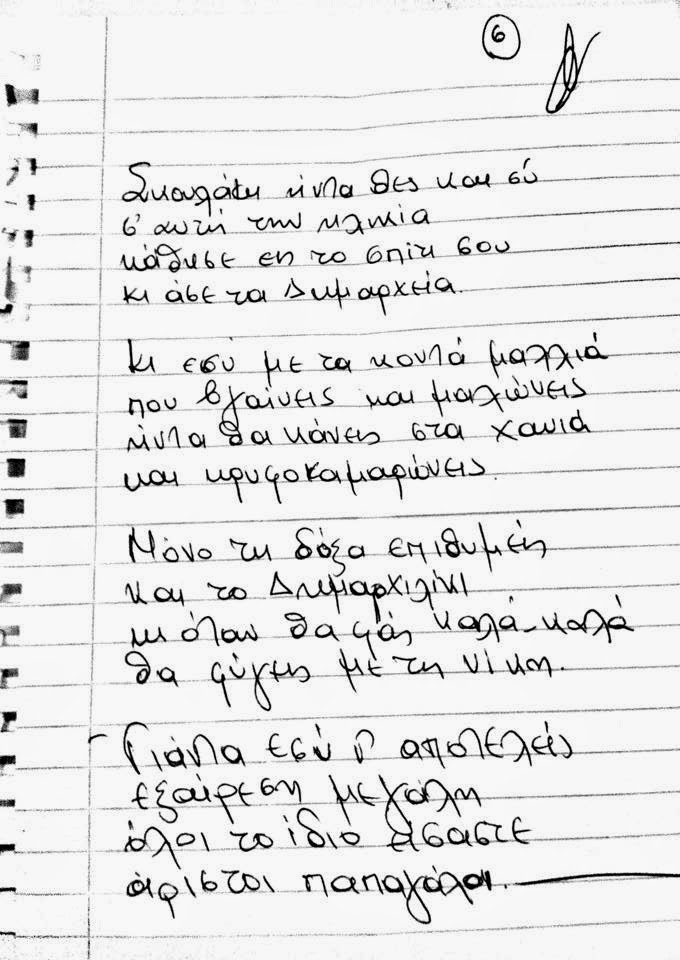 6
Σκουλάκη ήντα θες και σύ
σ' αυτή την ηλικία
κάθησε εις το σπίτι σου
κι άσε τα Δημαρχεία.
Κι εσύ με τα κοντά μαλλιά
που βγαίνεις και μαλώνεις
ήντα θα κάνεις στα χανιά
και κρυφοκαμαρώνεις.
Μόνο τη δόξα επιθυμείς
και το Δημαρχιλίκι
κι όταν θα φάς καλά-καλά
θα φύγεις με τη νίκη.
Γιάντα εσύ ν' αποτελείς
εξαίρεση μεγάλη
όλοι το ίδιο είσαστε
άριστοι παπαγάλοι.